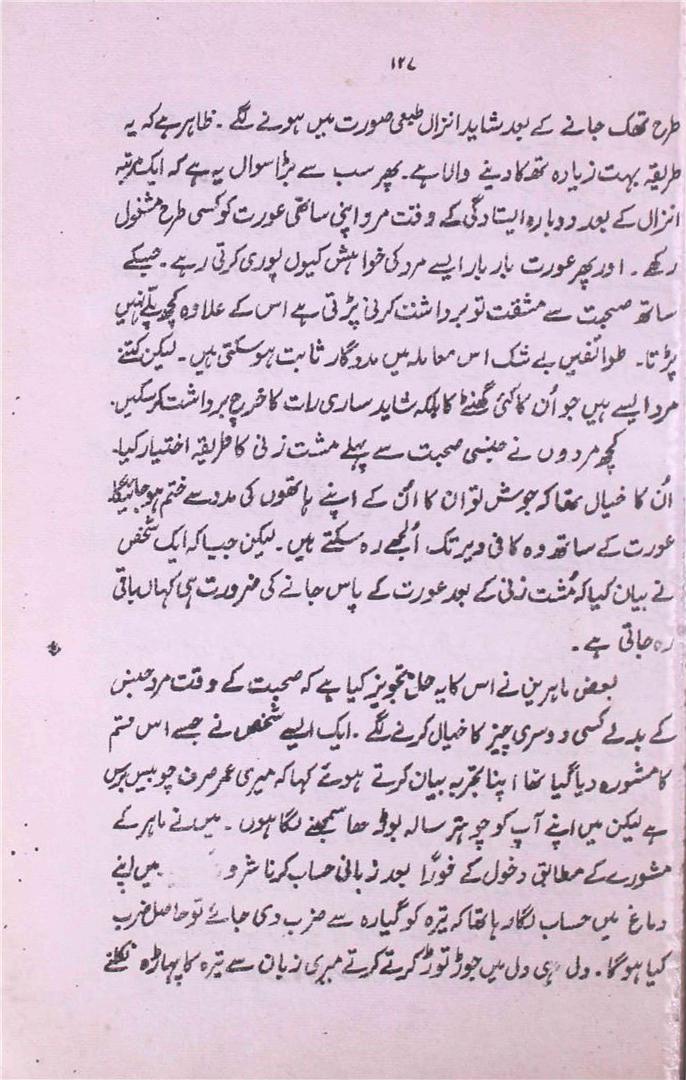 ۱۲۷
طرح تھک جانے کے بعد شاید انزال طبعی صورت میں ہونے لگے ۔ ظاہر ہے کہ یہ
طریقہ بہت زیادہ تھکا دینے والا ہے۔ پھر سب سے بڑا سوال یہ ہے کہ ایک مرتبہ
انزال کے بعد دوبارہ ایستادگی کے وقت مرد اپنی ساتھی عورت کو کسی طرح مشغول
رکھے ۔ اور پھر عورت بار بار ایسے مرد کی خواہش کیوں پوری کرتی رہے ۔ جسکے
ساتھ صحبت سے مشقت تو برداشت کرنی پڑتی ہے اس کے علاوہ کچھ پلے نہیں
پڑتا۔ طوائفیں بے شک اس معاملہ میں مددگار ثابت ہو سکتی ہیں ۔ لیکن کتنے
مرد ایسے ہیں جو اُن کا کئی گھنٹے کا بلکہ شاید ساری رات کا خرچ برداشت کر سکیں۔
کچھ مردوں نے جنسی صحبت سے پہلے مشت زنی کا طریقہ اختیار کیا۔
اُن کا خیال تھا کہ جوش تو ان کا اُن کے اپنے ہاتھوں کی مدد سے ختم ہو جائیگا۔
عورت کے ساتھ وہ کافی دیر تک اُلجھے رہ سکتے ہیں ۔ لیکن جیسا کہ ایک شخص
نے بیان کیا کہ مُشت زنی کے بعد عورت کے پاس جانے کی ضرورت ہی کہاں باقی
رہ جاتی ہے ۔
بعض ماہرین نے اس کا یہ حل تجویز کیا ہے کہ صحبت کے وقت مرد جنس
کے بدلے کسی دوسری چیز کا خیال کرنے لگے ۔ ایک ایسے شخص نے جسے اس قسم
کا مشورہ دیا گیا تھا اپنا تجربہ بیان کرتے ہوئے کہا کہ میری عمر صرف چوبیس برس
ہے لیکن میں اپنے آپ کو چوہتر سالہ بوڑھا سمجھنے لگا ہوں ۔ میں نے ماہر کے
مشورے کے مطابق دخول کے فوراً بعد زبانی حساب کرنا شرو میں اپنے
دماغ میں حساب لگا رہا تھا کہ تیرہ کو گیارہ سے ضرب دی جائے تو حاصل ضرب
کیا ہو گا ۔ دل ہی دل میں جوڑ توڑ کرتے کرتے میری زبان سے تیرہ کا پہاڑہ نکلنے